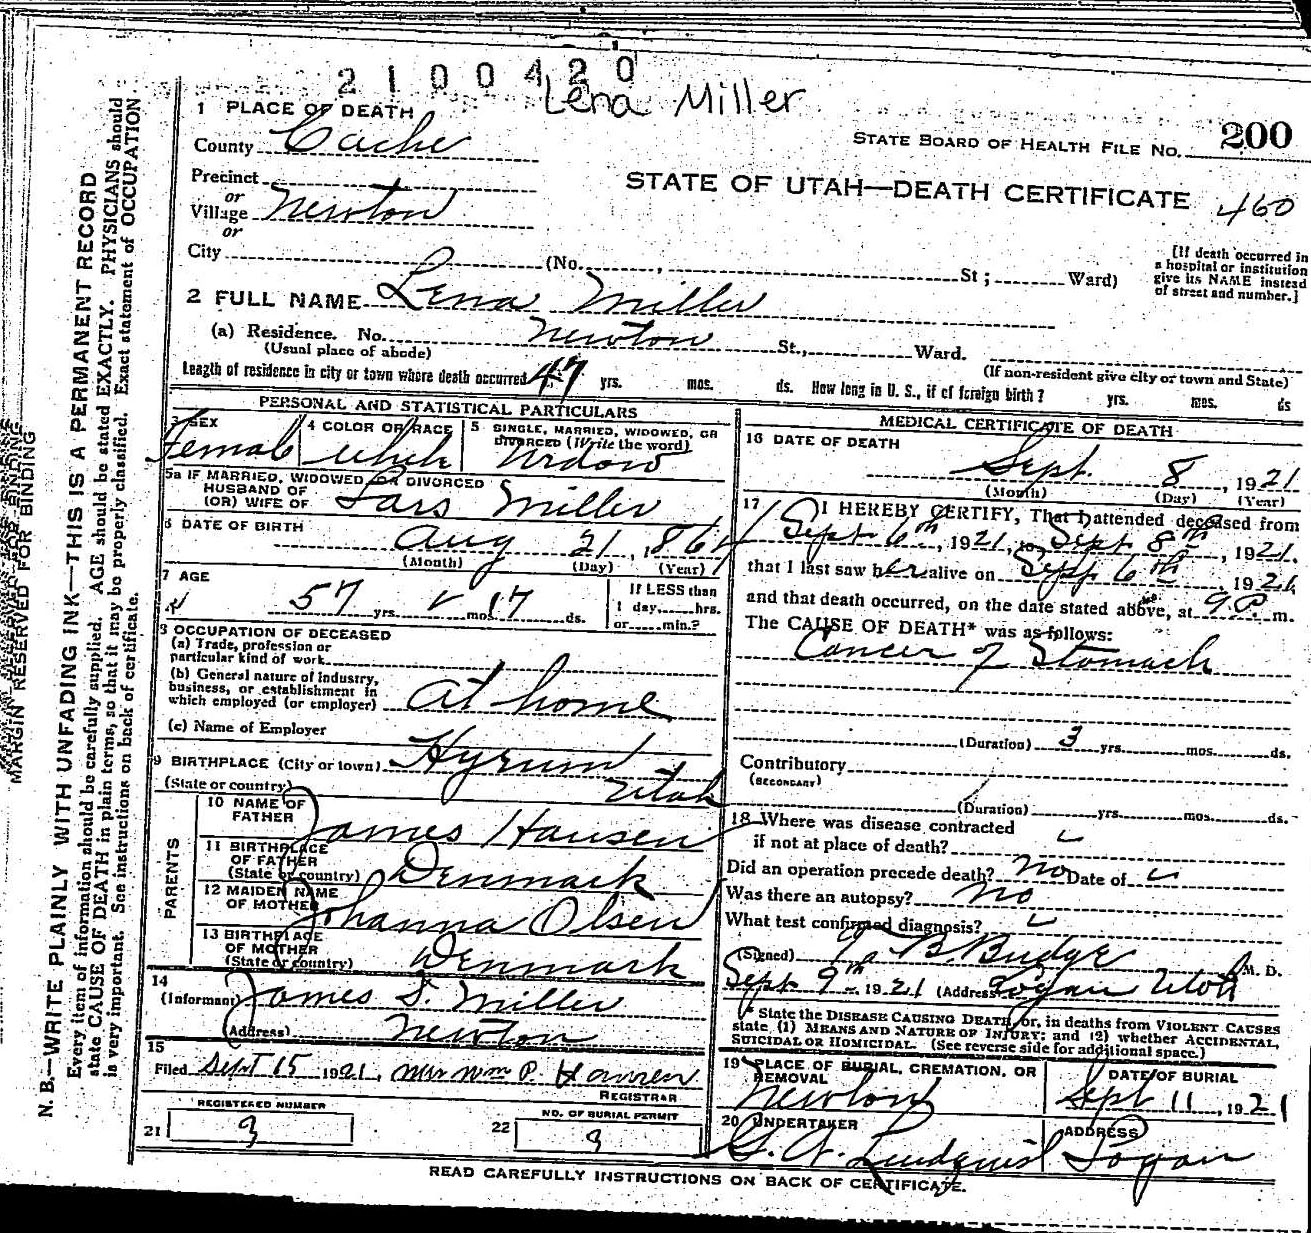 2100420
Lena Miller
1 PLACE OF DEATH
County Cache
STATE BOARD OF HEALTH FILE NO. 200
Precinct
or
Village Newton
or
STATE OF UTAH—DEATH CERTIFICATE 460
City (No. , St ; Ward)
[If death occurred in
a hospital or institution
give its NAME instead
of street and number.]
2 FULL NAME Lena Miller
(a) Residence. No. Newton St., Ward.
(Usual place of abode) (If non-resident give city or town and State)
Length of residence in city or town where death occurred 47 yrs. mos. ds. How long in U. S., if of foreign birth ? yrs. mos. ds
PERSONAL AND STATISTICAL PARTICULARS
3 SEX
Female
4 COLOR OR RACE
White
5 SINGLE, MARRIED, WIDOWED, OR
DIVORCED (Write the word)
Widow
5a IF MARRIED, WIDOWED OR DIVORCED
HUSBAND OF
(OR) WIFE OF Lars Miller
6 DATE OF BIRTH
Aug 21, 1864
(Month) (Day) (Year)
7 AGE
57 yrs. mos. 17 ds.
If LESS than
1 day, hrs.
or min.?
8 OCCUPATION OF DECEASED
(a) Trade, profession or
particular kind of work
(b) General nature of industry,
business, or establishment in
which employed (or employer) At home
(c) Name of Employer
9 BIRTHPLACE (City or town) Hyrum
(State or country) Utah
PARENTS
10 NAME OF
FATHER James Hansen
11 BIRTHPLACE
OF FATHER
(State or country) Denmark
12 MAIDEN NAME
OF MOTHER Johanna Olsen
13 BIRTHPLACE
OF MOTHER
(State or country) Denmark
14
(Informant) James S. Miller
(Address) Newton
15
Filed Sept 15 1921, Mrs Wm P.
REGISTRAR
REGISTERED NUMBER
21 9
NO. OF BURIAL PERMIT
22 9
MEDICAL CERTIFICATE OF DEATH
16 DATE OF DEATH
Sept. 8, 1921
(Month) (Day) (Year)
17 I HEREBY CERTIFY, That I attended deceased from
Sept 6th, 1921, to Sept 8th, 1921.
that I last saw her alive on Sept 6th 1921
and that death occurred, on the date stated above, at 9 P. m.
The CAUSE OF DEATH* was as follows:
Cancer of Stomach
(Duration) 3 yrs. mos. ds.
Contributory
(SECONDARY)
(Duration) yrs. mos. ds.
18 Where was disease contracted
if not at place of death?
Did an operation precede death? no Date of
Was there an autopsy? no
What test confirmed diagnosis?
(Signed) B. Budge M. D.
Sept 9th 1921 (Address) Logan Utah
* State the DISEASE CAUSING DEATH, or, in deaths from VIOLENT CAUSES
state (1) MEANS AND NATURE OF INJURY; and (2) whether ACCIDENTAL,
SUICIDAL OR HOMICIDAL. (See reverse side for additional space.)
19 PLACE OF BURIAL, CREMATION, OR
REMOVAL
Newton
DATE OF BURIAL
Sept 11, 1921
20 UNDERTAKER
Lindquist
ADDRESS
Logan
READ CAREFULLY INSTRUCTIONS ON BACK OF CERTIFICATE.
MARGIN RESERVED FOR BINDING
N. B.—WRITE PLAINLY WITH UNFADING INK—THIS IS A PERMANENT RECORD
Every item of information should be carefully supplied. AGE should be stated EXACTLY. PHYSICIANS should
state CAUSE OF DEATH in plain terms, so that it may be properly classified. Exact statement of OCCUPATION
is very important. See instructions on back of certificate.